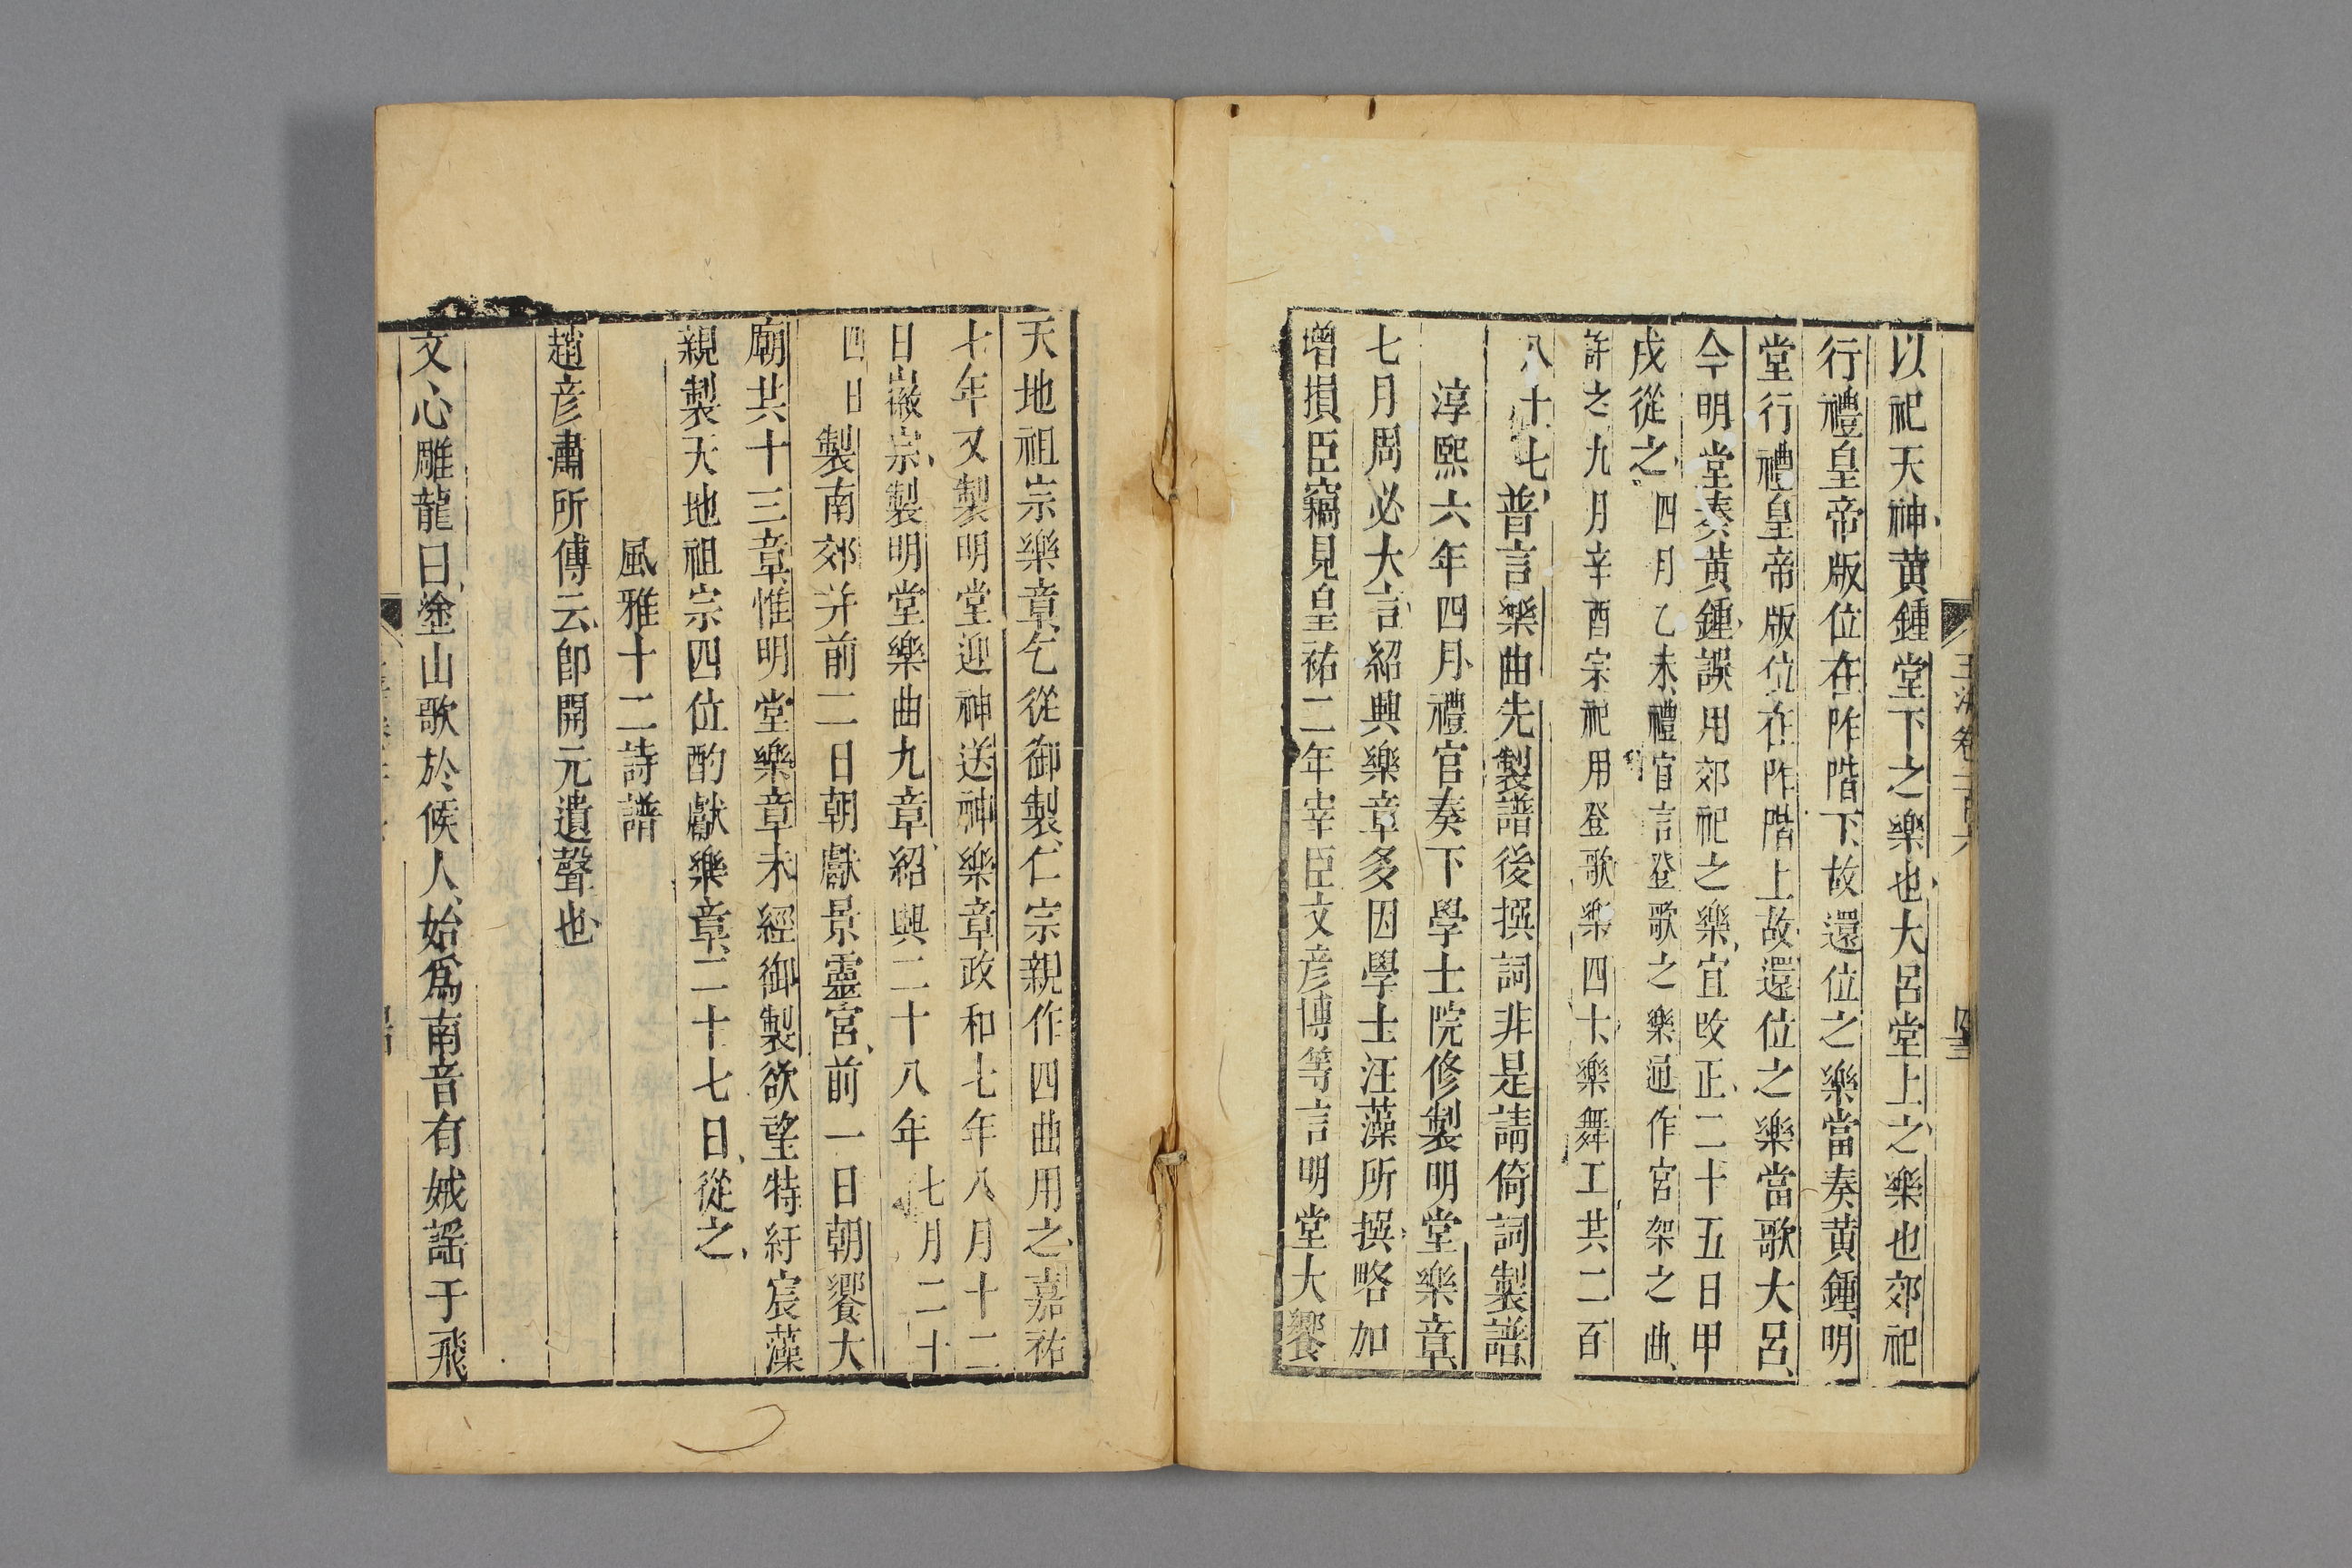 玉海卷一百六
以祀天神黄鍾堂下之樂也大呂堂上之樂也郊祀
行禮皇帝版位在阼階下故還位之樂當奏黄鍾明
堂行禮皇帝版位在阼階上故還位之樂當歌大呂
今明堂奏黄鍾誤用郊祀之樂宜改正二十五日甲
戌從之四月乙未禮官言登歌之樂通作宮架之曲
許之九月辛酉宗祀用登歌樂四十樂舞工共二百
八十七普言樂曲先製譜後撰詞非是請倚詞製譜
淳熙六年四月禮官奏下學士院修製明堂樂章
七月周必大言紹興樂章多因學士汪藻所撰略加
增損臣竊見皇祐二年宰臣文彦博等言明堂大饗
天地祖宗樂章乞從御製仁宗親作四曲用之嘉祐
七年又製明堂迎神送神樂章政和七年八月十二
日徽宗製明堂樂曲九章紹興二十八年七月二十
四日製南郊并前二日朝獻景靈宮前一日朝饗大
廟共十三章惟明堂樂章未經御製欲望特紆宸藻
親製天地祖宗四位酌獻樂章二十七日從之
風雅十二詩譜
趙彦肅所傳云即開元遺聲也
文心雕龍曰塗山歌於候人始爲南音有娀謡于飛